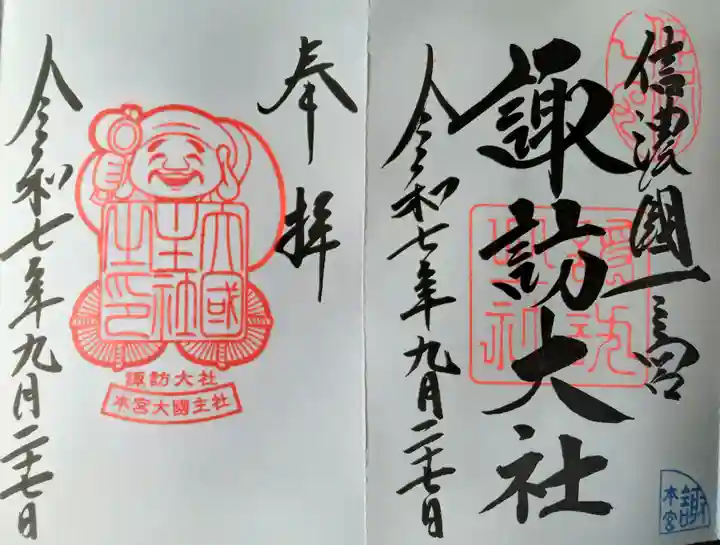 信濃國一宮
諏訪大社
令和七年九月二十七日
諏訪
本宮
奉拝
大國
主社
之印
諏訪大社
本宮大國主社
令和七年九月二十七日